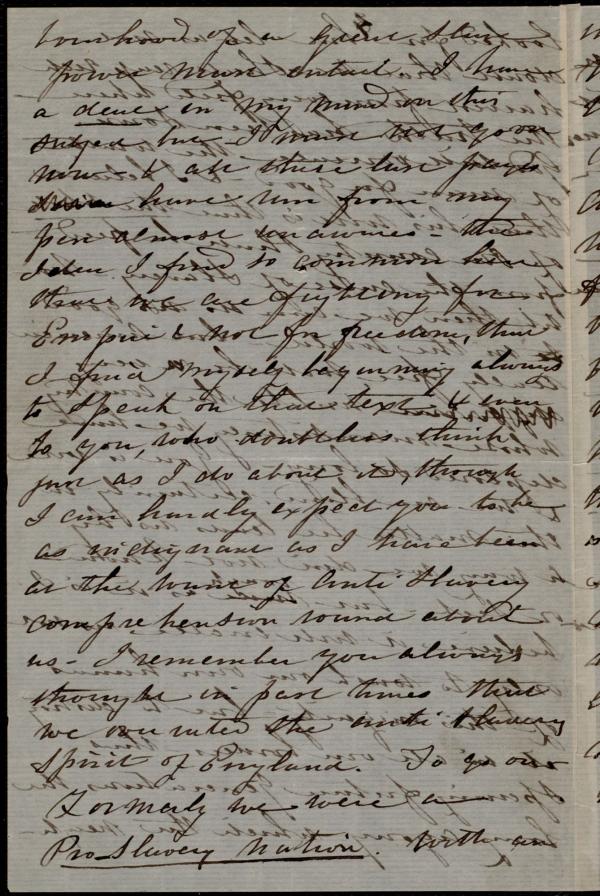 bourhood of a great Slave
power must entail. I have
a deal in my mind on this
subject but I must not go on
now - & all these last pages
have run from my
pen almost unawares - this
idea I find so common here
that we are fighting for
Empire & not for freedom, that
I find myself beginning always
to speak on that text - & even
to you, who doubtless think
just as I do about it, though
I can hardly expect you to be
as indignant as I have been
at the want of Anti Slavery
comprehension round about
us - I remember you always
thought in past times that
we overrated the anti Slavery
Spirit of England. To go on
Formerly we were a
Pro-Slavery Nation. With an